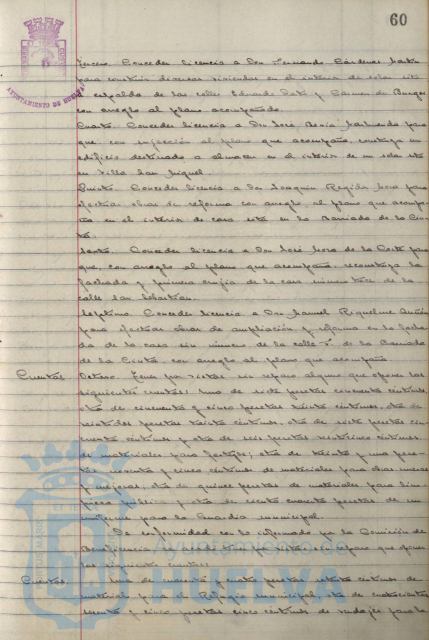 60
AYUNTAMIENTO DE HUELVA
Tercero. Conceder licencia a Don Fernando Cárdenas Martín
para construir diversas viviendas en el interior de solar sito
espalda de las calles Eduardo Dato y Carmen de Burgos
con arreglo al plano acompañado.
Cuarto. Conceder licencia a Don José para
que, con sujeción al plano que acompaña, construya un
edificio destinado a almacen en el interior de un solar sito
en Villa San Miguel.
Quinto. Conceder licencia a Don Joaquín Regida para
efectuar obras de reforma con arreglo al plano que acompa-
ña en el interior de casa sita en la Barriada de la Cin-
ta.
Sexto. Conceder licencia a Don José Mora de la Corte para
que, con arreglo al plano que acompaña, reconstruya la
fachada y primera crujía de la casa número trece de la
calle San Sebastián.
Séptimo. Conceder licencia a Don Manuel Riquelme
para efectuar obras de ampliación y reforma en la facha-
da de la casa sin número de la calle de la Barriada
de la Cinta, con arreglo al plano que acompaña
Cuentas. Octavo. por vistas, sin reparo alguno que oponer las
siguientes cuentas: Una de siete pesetas cincuenta céntimos,
otra de cincuenta y cinco pesetas treinta céntimos, otra de
veintidos pesetas treinta céntimos, otra de siete pesetas cin-
cuenta céntimos y otra de seis pesetas veinticinco céntimos,
de materiales para festejos; otra de treinta y una pese-
tas cuarenta y cinco céntimos de materiales para obras nuevas
y mejoras; otra de quince pesetas de materiales para lim-
pieza pública y otra de ciento cuarenta pesetas de un
uniforme para la Guardia municipal.
De conformidad con lo informado por la Comisión de
Beneficencia, se por vistas sin reparo que oponer
las siguientes cuentas:
Cuentas. Una de cuarenta y cuatro pesetas céntimos de
material para el Refugio municipal, otra de cuatrocientas
y cinco pesetas cinco céntimos de para la
Ayuntamiento de
HUELVA